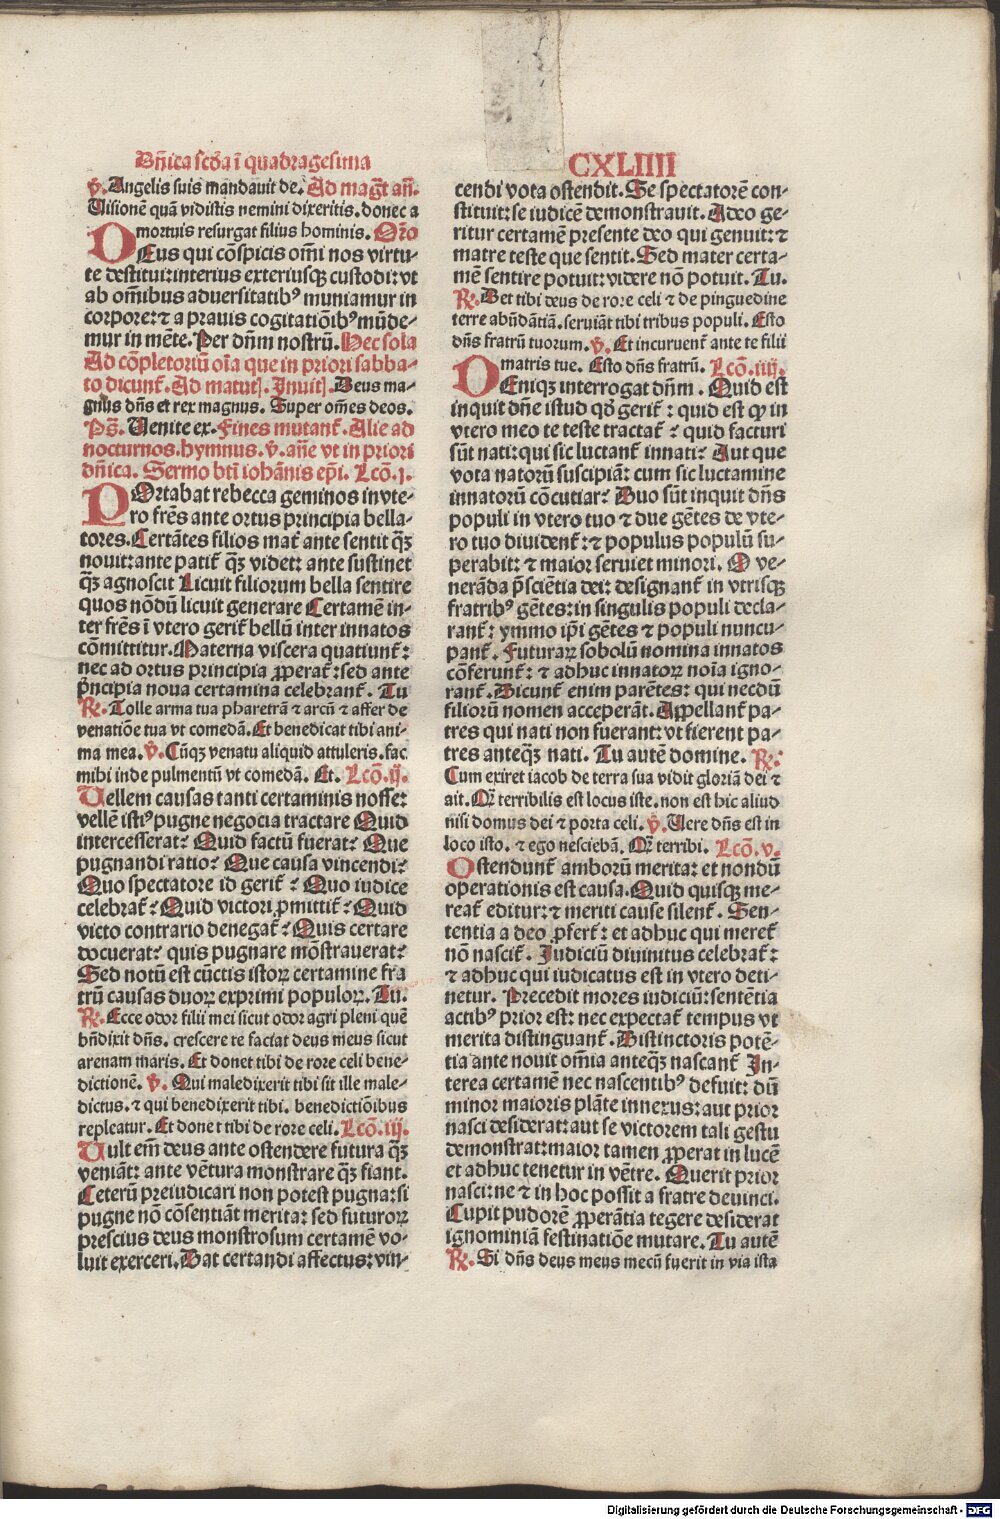 Dñica scďa ī quadragesima
v̄. Angelis suis mandauit de. Ad mag̃t añ.
Uisionē quā vidistis nemini dixeritis. donec a
mortuis resurgat filius hominis. Or̄o
DEus qui cōspicis om̄i nos virtu-
te destitui: interius exteriusqꝫ custodi: vt
ab om̄ibus aduersitatibꝰ muniamur in
corpore: ⁊ a prauis cogitatiōibꝰ mūde-
mur in mēte. Per dn̄m nostrū. Hec sola
Ad cōpletoriū oīa que in priori sabba-
to dicunt᷑. Ad matut᷑. Inuit᷑. Deus ma-
gnus dn̄s et rex magnus. Super om̄es deos.
Ps̄. Uenite ex. Fines mutant᷑. Alie ad
nocturnos. hymnus. v̄. añe vt in priori
dn̄ica. Sermo bt̄i iohānis ep̄i. Lcō. j.
POrtabat rebecca geminos in vte-
ro fr̄es ante ortus principia bella-
tores. Certātes filios mat᷑ ante sentit qꝫ̄
nouit: ante patit᷑ qꝫ̄ videt: ante sustinet
qꝫ̄ agnoscit Licuit filiorum bella sentire
quos nōdū licuit generare Certamē in-
ter fr̄es ī vtero gerit᷑ bellū inter innatos
cōmittitur. Materna viscera quatiunt᷑:
nec ad ortus principia ꝓperat᷑: sed ante
p̄ncipia noua certamina celebrant᷑. Tu
R̄. Tolle arma tua pharetrā ⁊ arcū ⁊ affer de
venatiōe tua vt comedā. Et benedicat tibi ani-
ma mea. v̄. Cūqꝫ venatu aliquid attuleris. fac
mihi inde pulmentū vt comedā. Et. Lcō. ij.
Uellem causas tanti certaminis nosse:
vellē istiꝰ pugne negocia tractare Quid
intercesserat: Quid factū fuerat: Que
pugnandi ratio: Que causa vincendi:
Quo spectatore id gerit᷑: Quo iudice
celebrat᷑: Quid victori ꝓmittit᷑: Quid
victo contrario denegat᷑: Quis certare
docuerat: quis pugnare mōstrauerat:
Sed notū est cūctis istoꝝ certamine fra
trū causas duoꝝ exprimi populoꝝ. Tu.
R̄. Ecce odor filii mei sicut odor agri pleni quē
bn̄dixit dn̄s. crescere te faciat deus meus sicut
arenam maris. Et donet tibi de rore celi bene-
dictionē. v̄. Qui maledixerit tibi sit ille male-
dictus. ⁊ qui benedixerit tibi. benedictiōibus
repleatur. Et donet tibi de rore celi. Lcō. iij.
Uult em̄ deus ante ostendere futura qꝫ̄
veniāt: ante vētura monstrare qꝫ̄ fiant.
Ceterū preiudicari non potest pugna: si
pugne nō cōsentiāt merita: sed futuroꝝ
prescius deus monstrosum certamē vo-
luit exerceri. Dat certandi affectus: vin-
CXLIIII
cendi vota ostendit. Se spectatorē con-
stituit: se iudicē demonstrauit. Adeo ge-
ritur certamē presente deo qui genuit: ⁊
matre teste que sentit. Sed mater certa-
mē sentire potuit: videre nō potuit. Tu.
R̄. Det tibi deus de rore celi ⁊ de pinguedine
terre abūdātiā. seruiāt tibi tribus populi. Esto
dn̄s fratrū tuorum. v̄. Et incuruent᷑ ante te filii
matris tue. Esto dn̄s fratrū. Lcō. iiij.
DEniqꝫ interrogat dn̄m. Quid est
inquit dn̄e istud qď gerit᷑: quid est qꝙ in
vtero meo te teste tractat᷑: quid facturi
sūt nati: qui sic luctant᷑ innati: Aut que
vota natorū suscipiā: cum sic luctamine
innatorū cōcutiar: Duo sūt inquit dn̄s
populi in vtero tuo ⁊ due gētes de vte-
ro tuo diuident᷑: ⁊ populus populū su-
perabit: ⁊ maior seruiet minori. O ve-
nerāda p̄sciētia dei: designant᷑ in vtrisqꝫ
fratribꝰ gētes: in singulis populi decla-
rant᷑: ymmo ip̄i gētes ⁊ populi nuncu-
pant᷑. Futuraꝝ sobolū nomina innatos
cōferunt᷑: ⁊ adhuc innatoꝝ noīa igno-
rant᷑. Dicunt᷑ enim parētes: qui necdū
filiorū nomen acceperāt. Appellant᷑ pa-
tres qui nati non fuerant: vt fierent pa-
tres anteqꝫ̄ nati. Tu autē domine. R̄.
Cum exiret iacob de terra sua vidit gloriā dei ⁊
ait. Qr̄ terribilis est locus iste. non est hic aliud
nisi domus dei ⁊ porta celi. v̄. Uere dn̄s est in
loco isto. ⁊ ego nesciebā. Qr̄ terribi. Lcō. v.
Ostendunt᷑ amborū merita: et nondū
operationis est causa. Quid quisqꝫ me-
reat᷑ editur: ⁊ meriti cause silent᷑. Sen-
tentia a deo ꝓfert᷑: et adhuc qui meret᷑
nō nascit᷑. Judiciū diuinitus celebrat᷑:
⁊ adhuc qui iudicatus est in vtero deti-
netur. Precedit mores iudiciū: sentētia
actibꝰ prior est: nec expectat᷑ tempus vt
merita distinguant᷑. Distinctoris potē-
tia ante nouit om̄ia anteqꝫ̄ nascant᷑ In-
terea certamē nec nascentibꝰ defuit: dū
minor maioris plāte innexus: aut prior
nasci desiderat: aut se victorem tali gestu
demonstrat: maior tamen ꝓperat in lucē
et adhuc tenetur in vētre. Querit prior
nasci: ne ⁊ in hoc possit a fratre deuinci.
Cupit pudorē ꝓperātia tegere desiderat
ignominiā festinatiōe mutare. Tu autē
R̄. Si dn̄s deus meus mecū fuerit in via ista
Digitalisierung gefördert durch die Deutsche Forschungsgemeinschaft - DFG